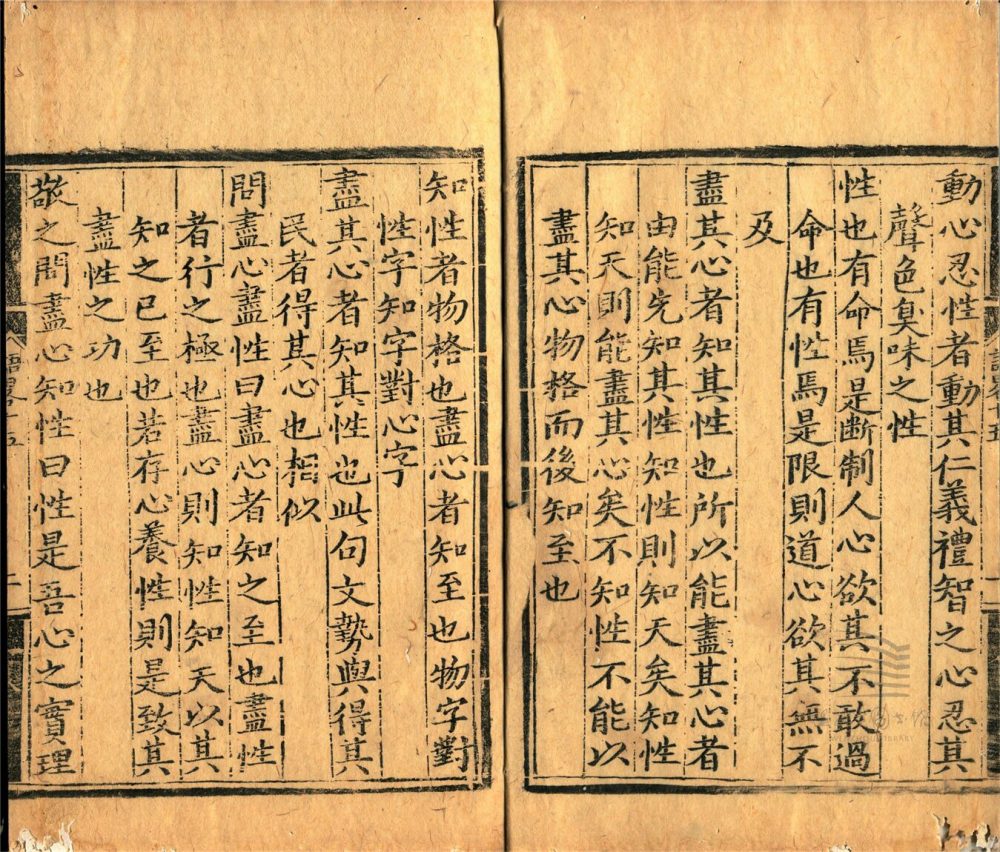 動心忍性者動其仁義禮智之心忍其
聲色臭味之性
性也有命焉是断制人心欲其不敢過
命也有性焉是限則道心欲其無不
及
盡其心者知其性也所以能盡其心者
由能先知其性知性則知天矣知性
知天則能盡其心矣不知性不能以
盡其心物格而後知至也
知性者物格也盡心者知至也物字對
性字知字對心字
盡其心者知其性也此句文勢與得其
民者得其心也相似
問盡心盡性曰盡心者知之至也盡性
者行之極也盡心則知性知天以其
知之已至也若存心養性則是致其
盡性之功也
敬之問盡心知性曰性是吾心之實理
語畧十五
二